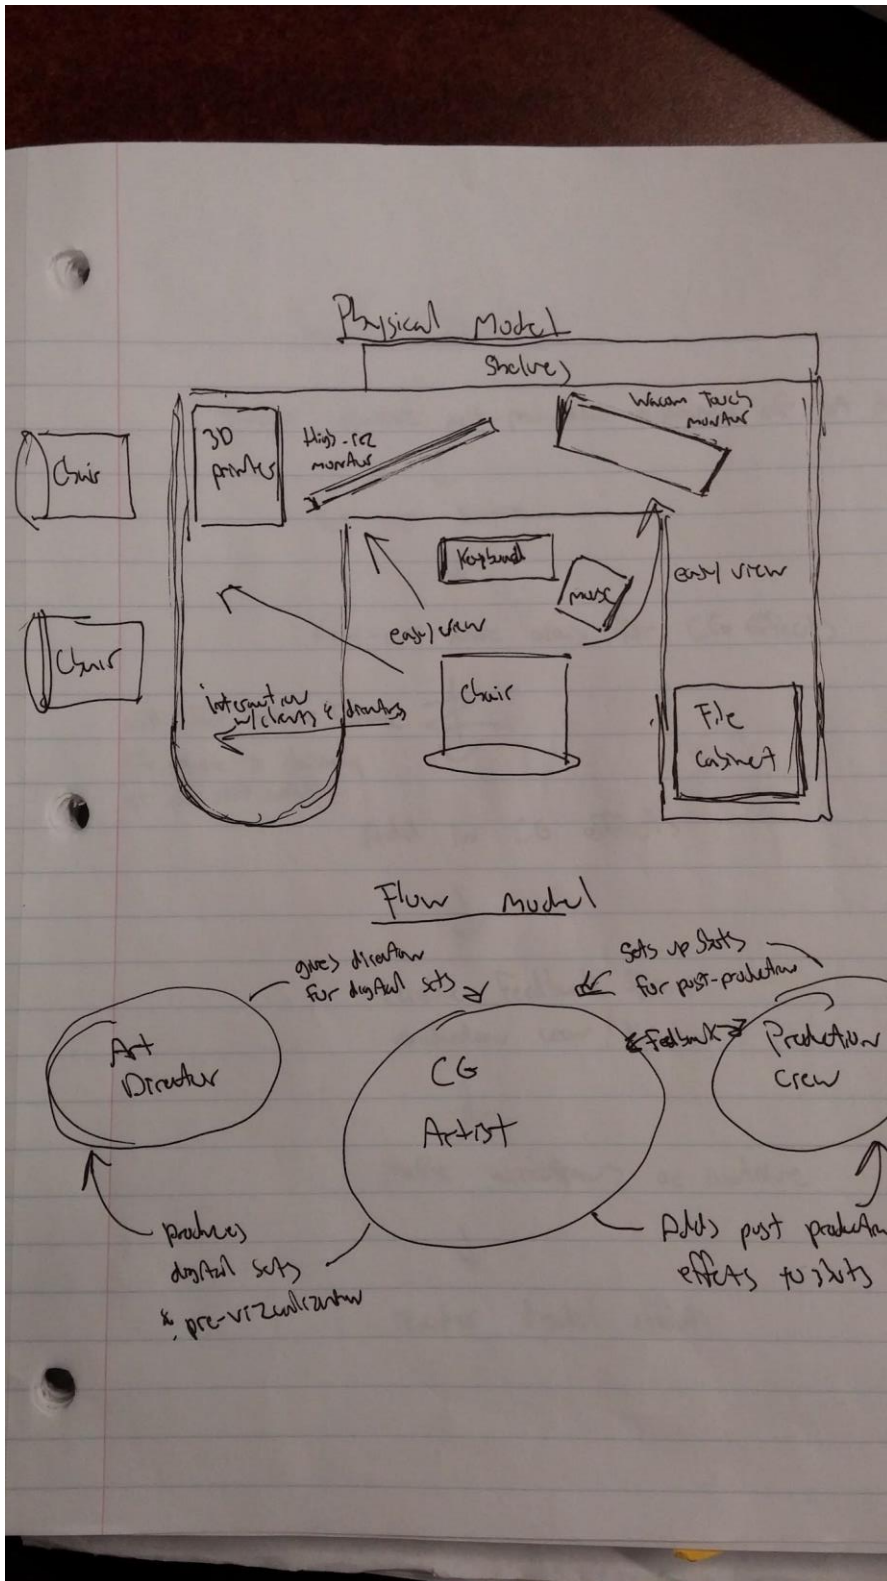 Physical Model
Shelves
Wacom Touch
monitor
3D
printer
High-rez
monitor
Chair
Keyboard
mouse
easy view
easy view
Chair
Chair
interaction
w/ clients & directors
File
cabinet
Flow model
gives direction
for digital sets
Sets up shots
for post-production
Art
Director
CG
Artist
feedback
Production
Crew
produces
digital sets
& pre-vizualization
Adds post production
effects to shots